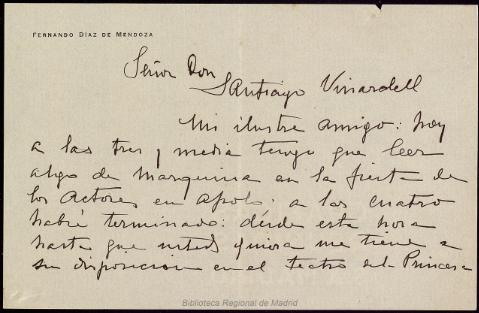 FERNANDO DÍAZ DE MENDOZA
Señor Don
Santiago Vinardell
Mi ilustre amigo: hoy
a las tres y media tengo que leer
algo de Marquina en la fiesta de
los Actores, en Apolo. a las cuatro
habré terminado: desde esta hora
hasta que usted quiera me tiene a
su disposición en el teatro de la Princesa
Biblioteca Regional de Madrid